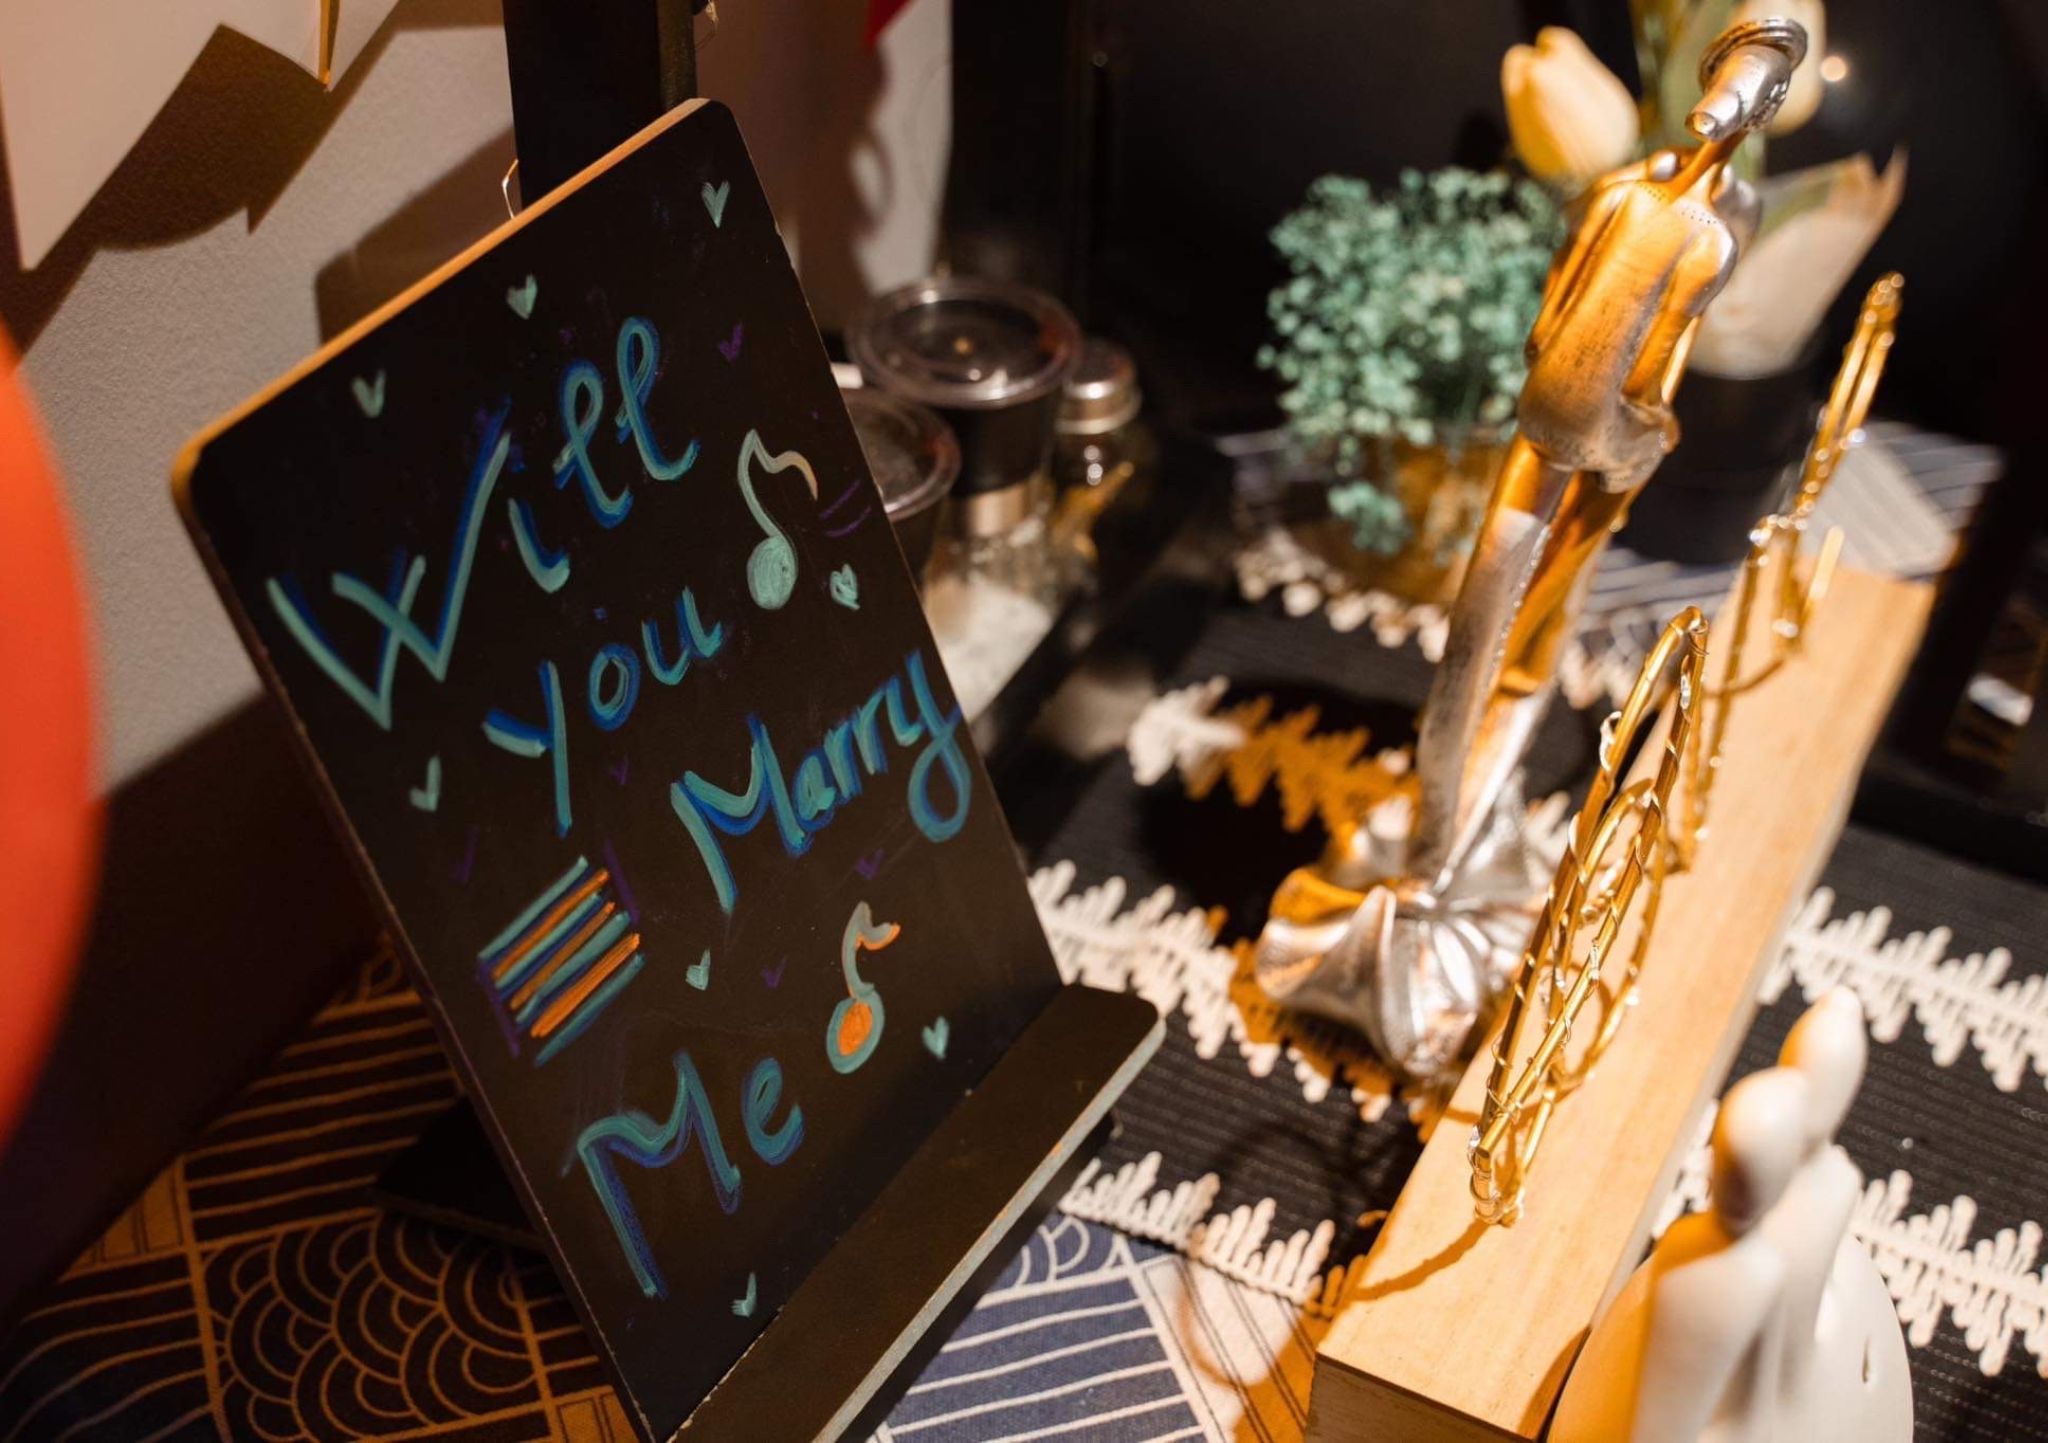 Will
you
Marry
Me